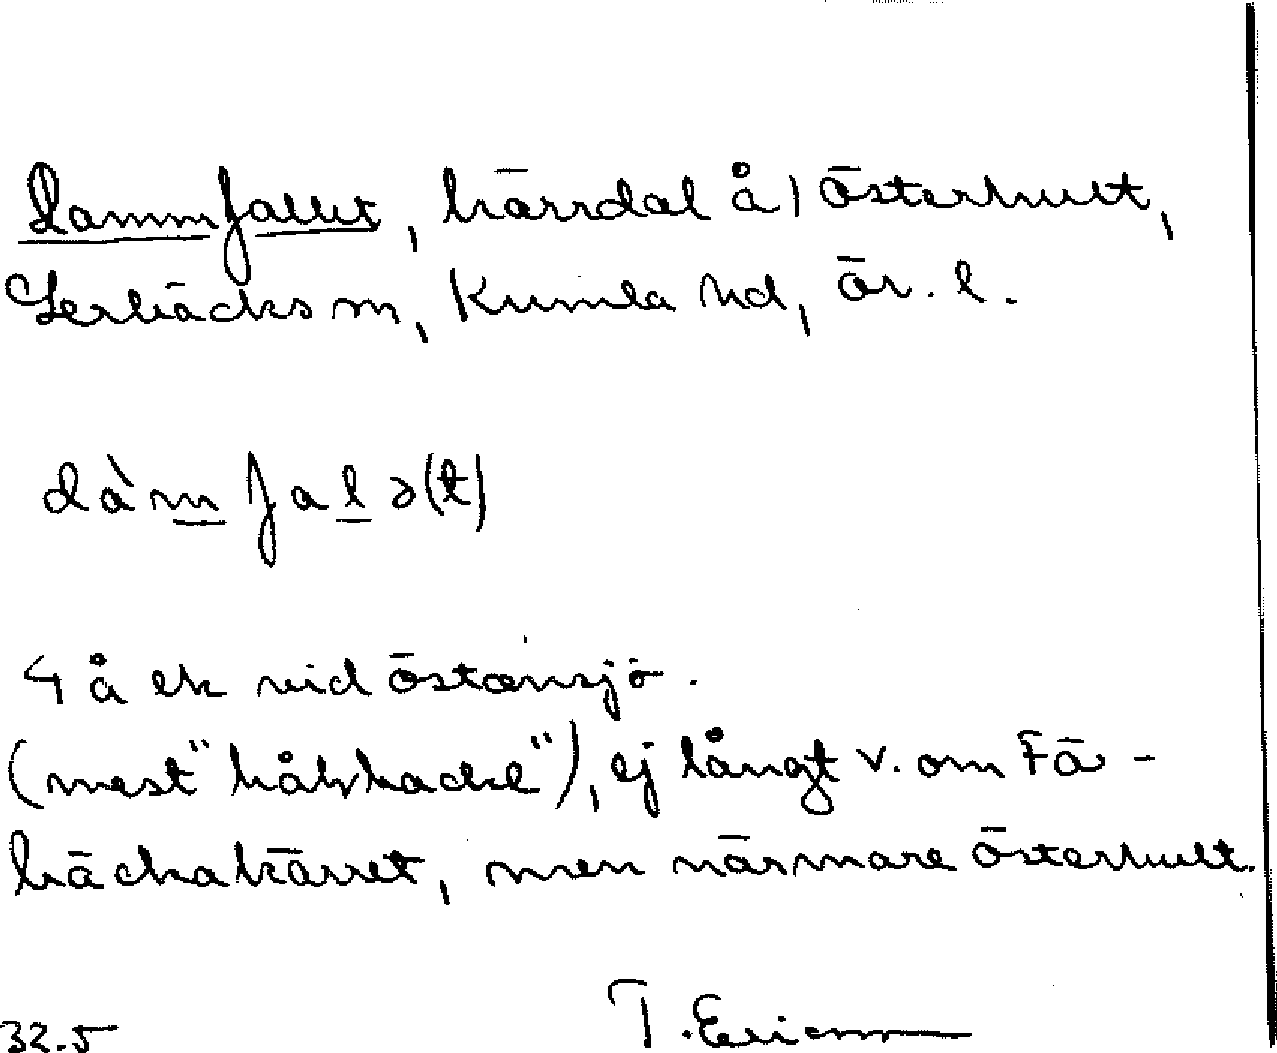 Dammfallet, kärrdal å | Österhult,
Lerbäcks sn, Kumla hd, Ör. l.
dàm fal ə(t)
4 å ek vid Östansjö.
(mest "håkbacke"), ej långt v. om Få-
bäckakärret, men närmare Österhult.
32.5 T. Ericsson